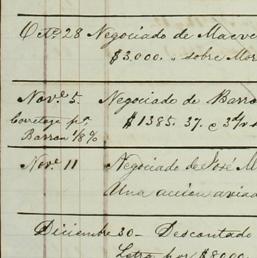 Oct.e 28 Negociado de Macve
$3,000. " sobre Mor
Nov.e 5. Negociado de Barro
Corretage p.r $1385. 37. c 3d/v s
Barron 1/8 %
Nov.e 11 Negociado de José M
Una accion avia
Diciembre 30 – Descontado
Letra por $8000